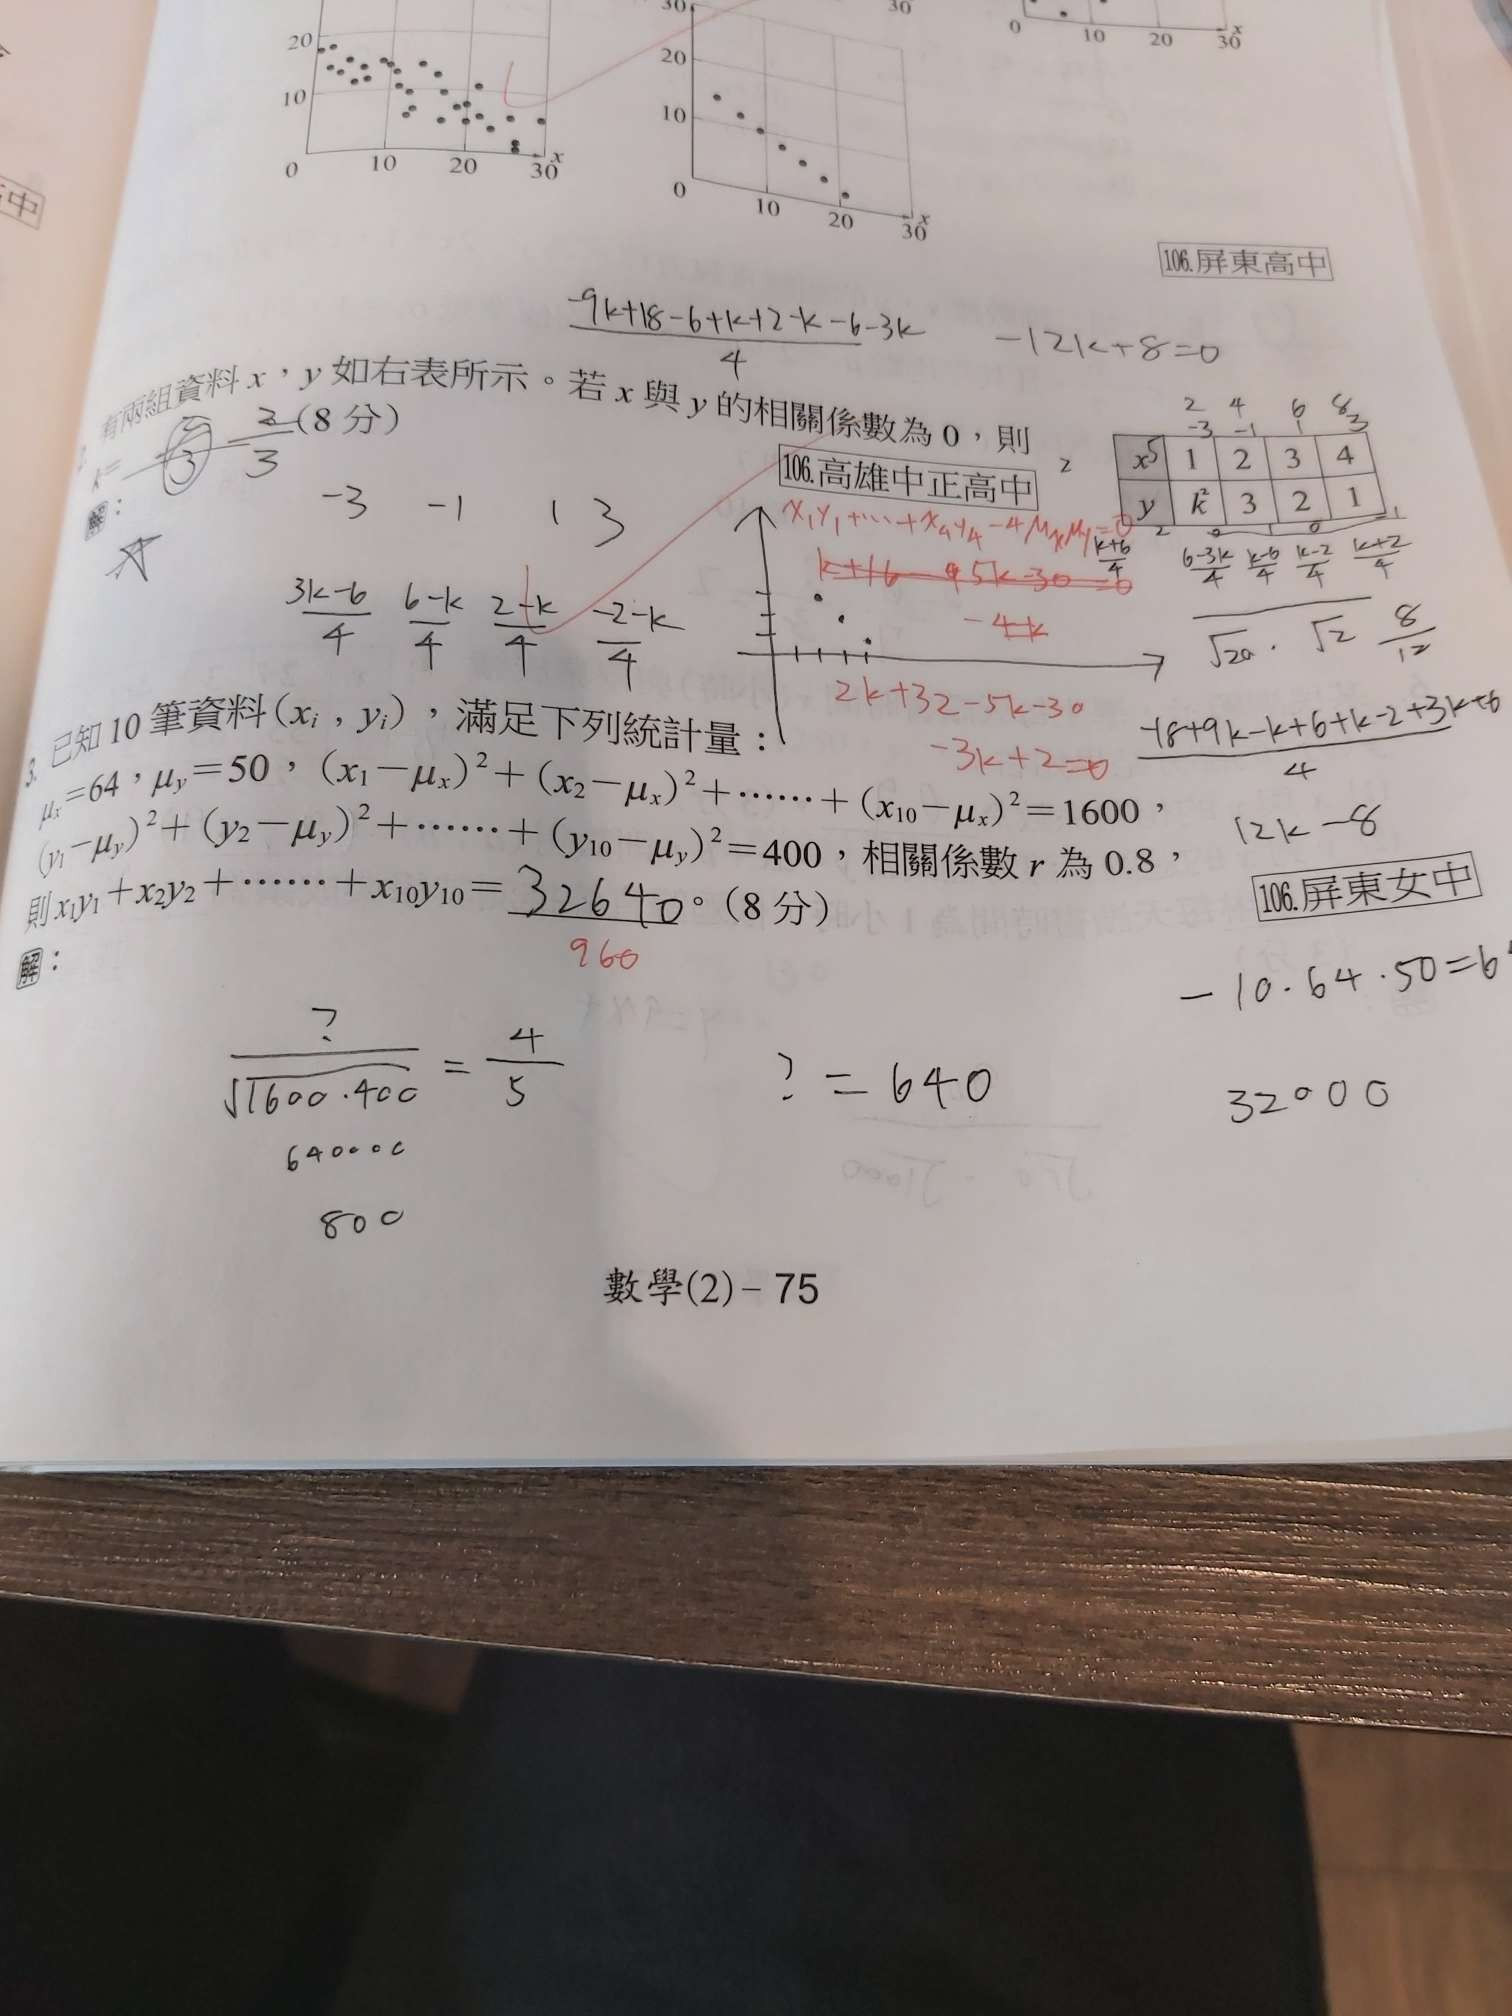 30
30
20
10
0
10
20
30
x
20
10
0
10
20
30
x
0
10
20
30
x
106.屏東高中
-9k+18-6+k+2-k-6-3k
4
-12k+8=0
2. 有兩組資料 x,y 如右表所示。若 x 與 y 的相關係數為 0,則
k= 2/3 (8 分)
106.高雄中正高中
2 4 6 8
-3 -1 1 3
x 1 2 3 4
y k 3 2 1
解:
-3 -1 1 3
x₁y₁+⋯+x₄y₄-4μxμy=0
k+6/4
6-3k/4 k-6/4 k-2/4 k+2/4
3k-6/4 6-k/4 2-k/4 -2-k/4
k+16 5k-30=0
-4k
√20·√2 8/12
2k+32-5k-30
-3k+2=0
-18+9k-k+6+k-2+3k+6
4
12k-8
3. 已知 10 筆資料(xᵢ,yᵢ),滿足下列統計量:
μx=64,μy=50,(x₁-μx)²+(x₂-μx)²+⋯⋯+(x₁₀-μx)²=1600,
(y₁-μy)²+(y₂-μy)²+⋯⋯+(y₁₀-μy)²=400,相關係數 r 為 0.8,
則 x₁y₁+x₂y₂+⋯⋯+x₁₀y₁₀=32640。(8 分)
106.屏東女中
960
解:
-10·64·50=64
?/√1600·400 = 4/5
?=640
32000
640000
800
數學(2)–75